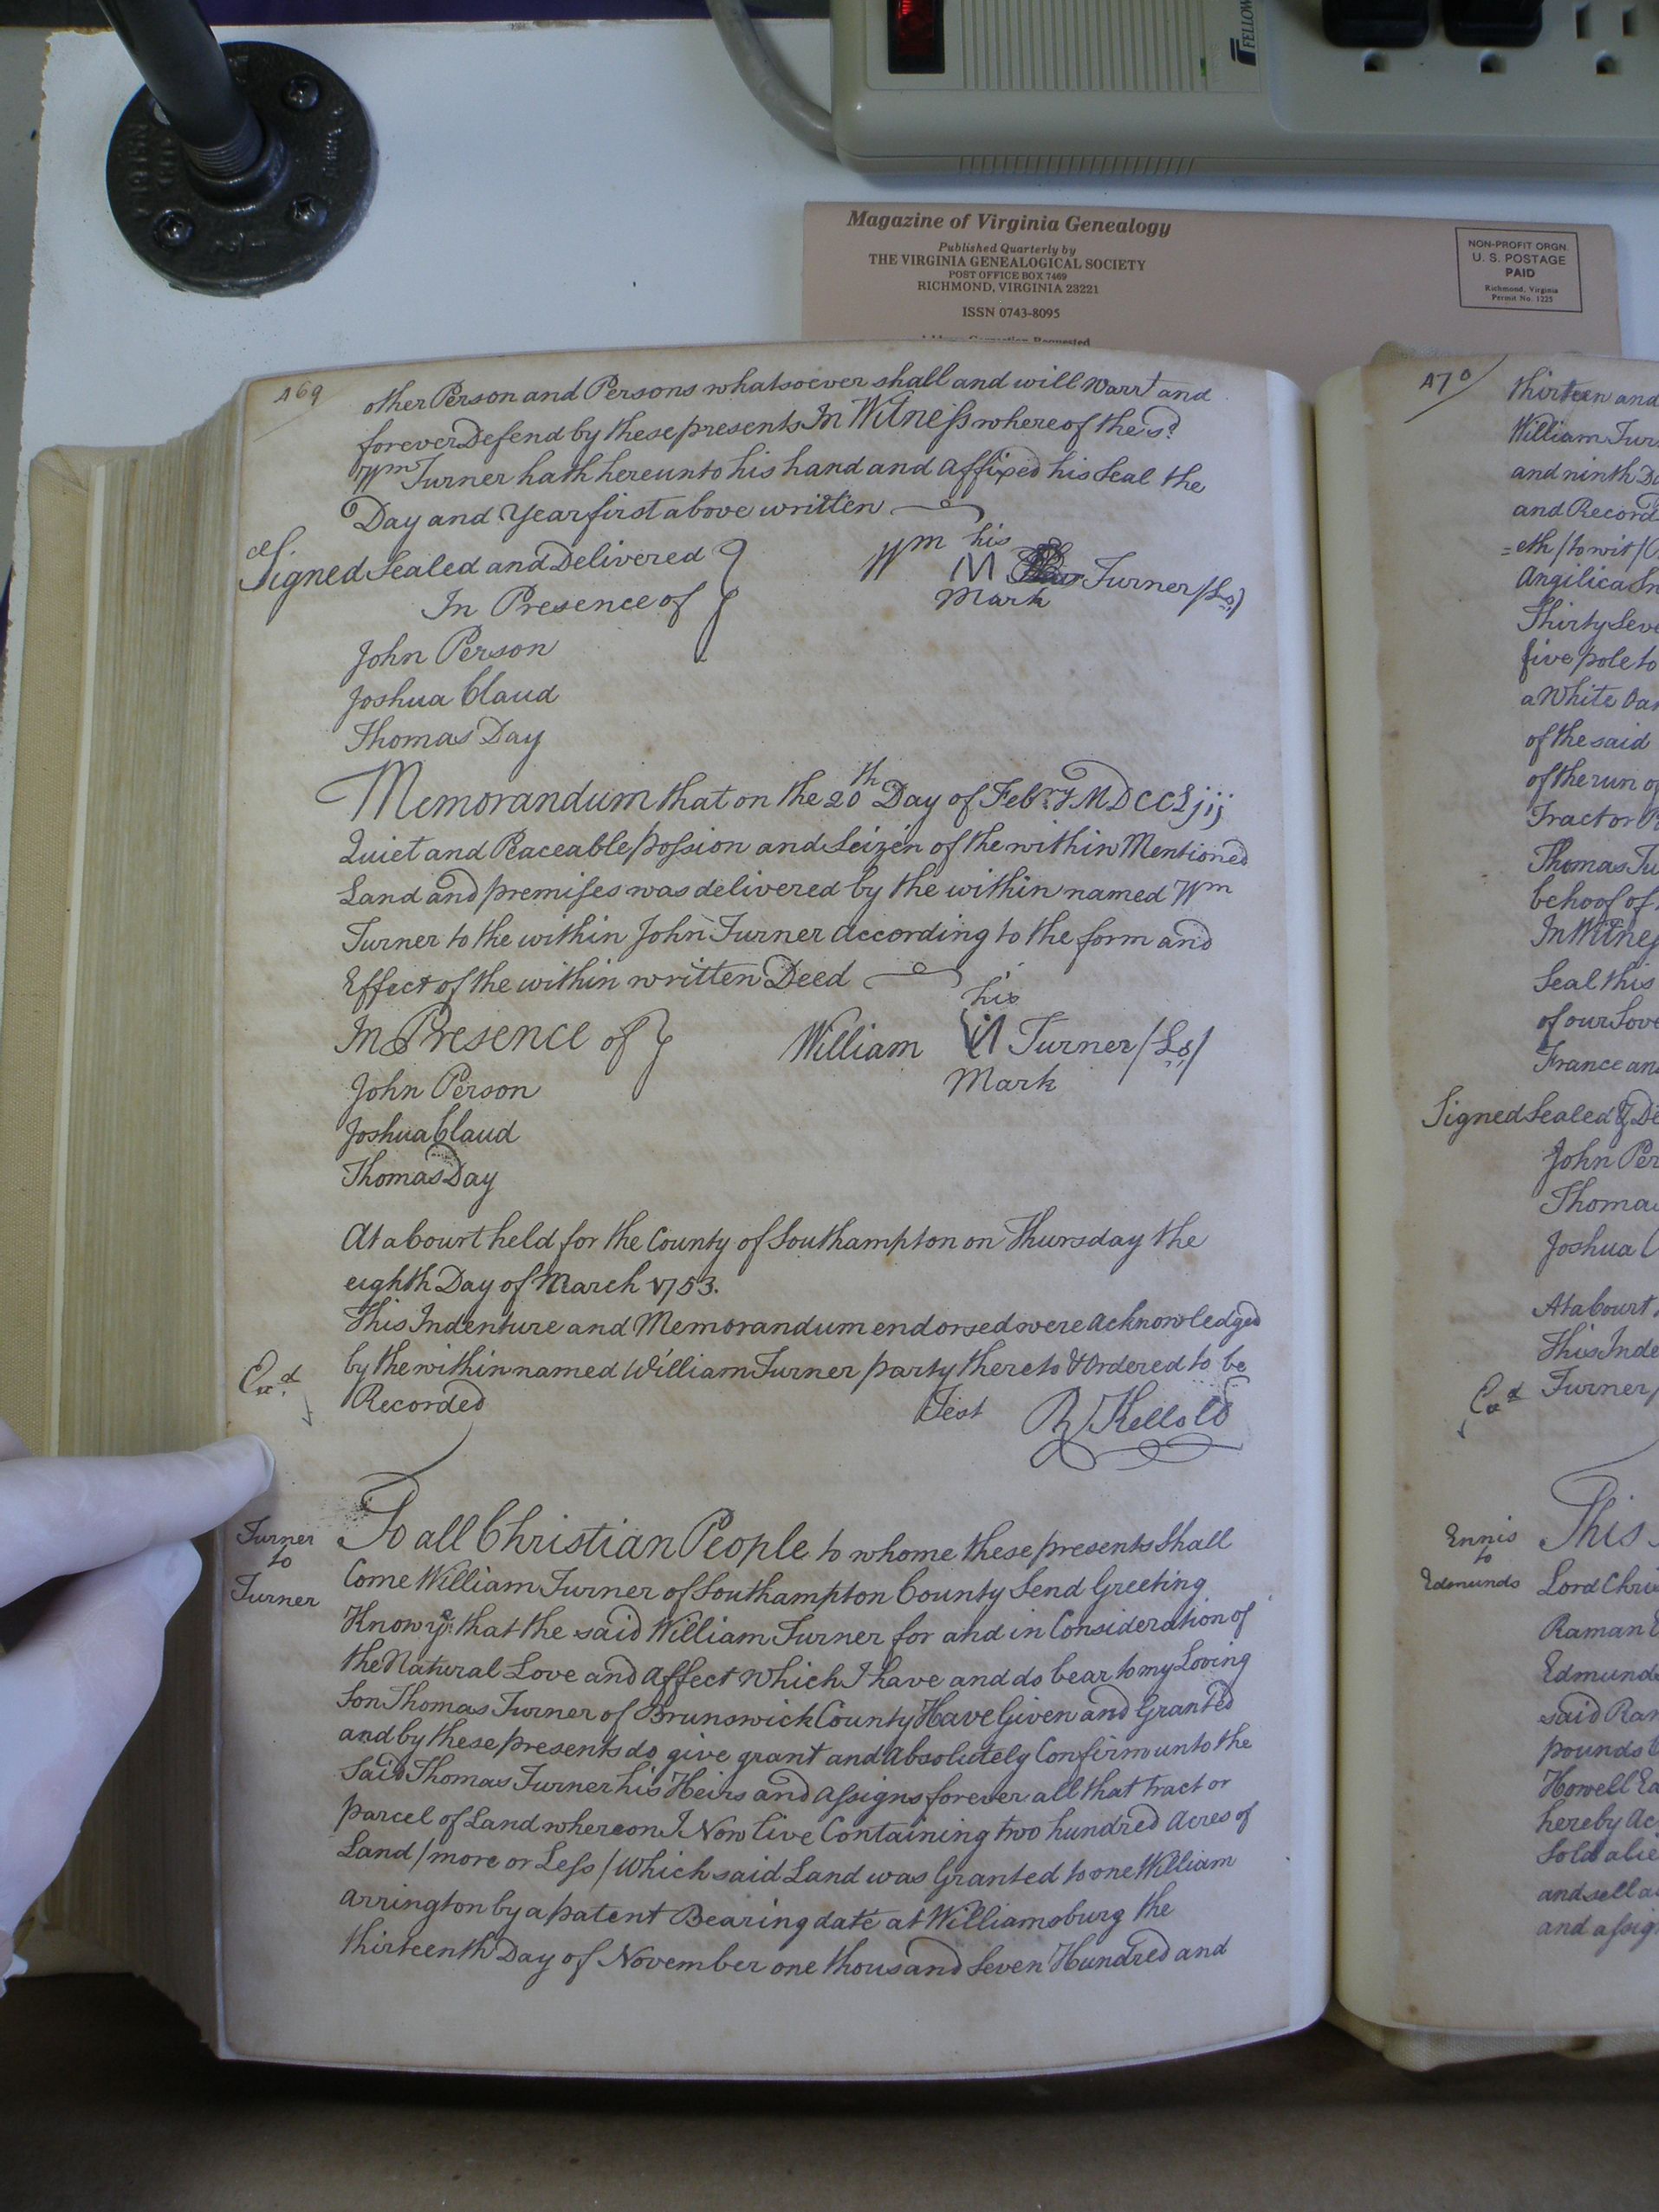 FELLOW
Magazine of Virginia Genealogy
Published Quarterly by
THE VIRGINIA GENEALOGICAL SOCIETY
POST OFFICE BOX 7469
RICHMOND, VIRGINIA 23221
ISSN 0743-8095
NON-PROFIT ORGN.
U. S. POSTAGE
PAID
Richmond, Virginia
Permit No. 1225
469
other Person and Persons whatsoever shall and will Warrt and
forever Defend by these presents In Witness whereof the sd
Wm Turner hath hereunto his hand and Affixed his Seal the
Day and Year first above written
Signed Sealed and Delivered
In Presence of
Wm his M Turner (Ls)
Mark
John Person
Joshua Claud
Thomas Day
Memorandum that on the 20th Day of Febry MDCCLjij
Quiet and Peaceable possion and Seizen of the within Mentioned
Land and premises was delivered by the within named Wm
Turner to the within John Turner According to the form and
Effect of the within written Deed
In Presence of
his
William Turner (Ls)
Mark
John Person
Joshua Claud
Thomas Day
At a Court held for the County of Southampton on Thursday the
eighth Day of March 1753.
This Indenture and Memorandum endorsed were Acknowledged
by the within named William Turner party thereto & Ordered to be
Recorded
Exd
Test
Turner
to
Turner
To all Christian People to whome these presents Shall
Come William Turner of Southampton County Send Greeting
Know ye that the said William Turner for and in Consideration of
the Natural Love and Affect which I have and do bear to my Loving
Son Thomas Turner of Brunswick County Have Given and Granted
and by these presents do give grant and Absolutely Confirm unto the
Said Thomas Turner his Heirs and Assigns forever all that tract or
parcel of Land whereon I Now live Containing two hundred Acres of
Land / more or Less / Which said Land was Granted to one William
Arrington by a patent Bearing date at Williamsburg the
thirteenth Day of November one thousand Seven Hundred and
470
thirteen and
William Tur
and ninth Da
and Record
=eth / to wit / 
Angilica
Thirty Seve
five pole to
a White Oak
of the said
of the run of
Tract or P
Thomas Tu
behoof of
In Witnes
Seal this
of our Sove
France an
Signed Sealed & De
John Per
Thomas
Joshua C
At a Court
This Inde
Exd
Turner
Ennis
to
Edmunds
This
Lord Chri
Raman E
Edmunds
said Ram
pounds
Howell Ed
hereby Ac
Sold alie
and sell a
and assig